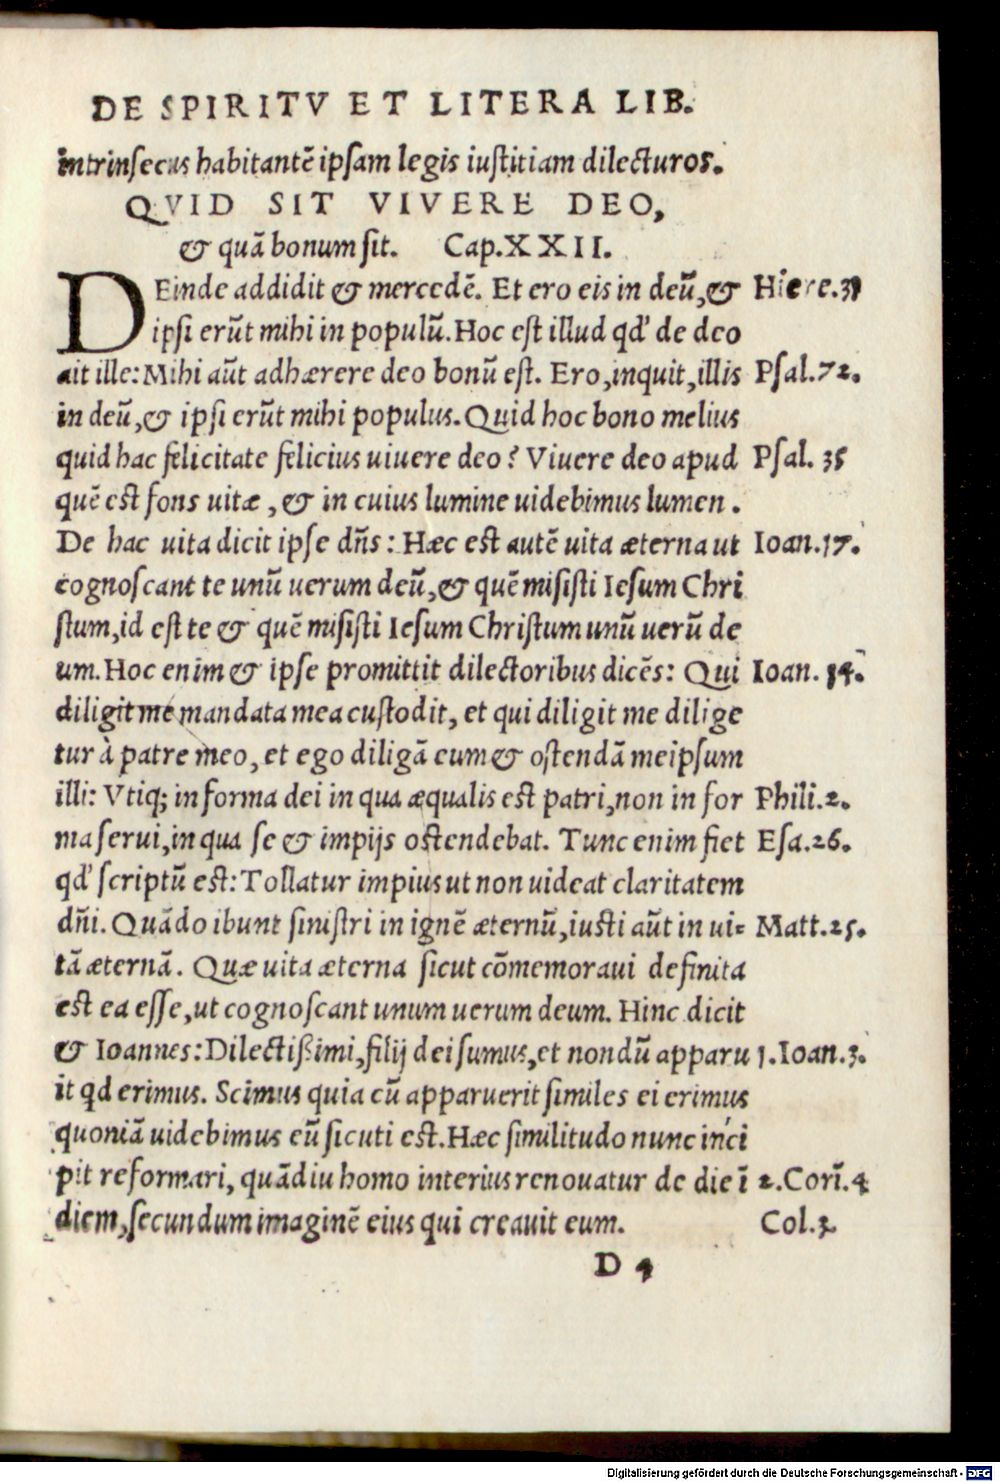 DE SPIRITV ET LITERA LIB.
intrinsecus habitantē ipsam legis iustitiam dilecturos.
QVID SIT VIVERE DEO,
& quā bonum sit. Cap.XXII.
DEinde addidit & mercedē. Et ero eis in deū,& Hiere.31
ipsi erūt mihi in populū. Hoc est illud qd' de deo
ait ille: Mihi aūt adhærere deo bonū est. Ero,inquit,illis Psal.72.
in deū,& ipsi erūt mihi populus. Quid hoc bono melius
quid hac felicitate felicius uiuere deo? Viuere deo apud Psal. 35
quē est fons uitæ, & in cuius lumine uidebimus lumen.
De hac uita dicit ipse dñs: Hæc est autē uita æterna ut Ioan.17.
cognoscant te unū uerum deū,& quē misisti Iesum Chri
stum,id est te & quē misisti Iesum Christum unū uerū de
um. Hoc enim & ipse promittit dilectoribus dicēs: Qui Ioan. 14.
diligit me mandata mea custodit, et qui diligit me dilige
tur à patre meo, et ego diligā eum & ostendā meipsum
illi: Vtiq; in forma dei in qua æqualis est patri,non in for Phili.2.
ma serui,in qua se & impijs ostendebat. Tunc enim fiet Esa.26.
qd' scriptū est: Tollatur impius ut non uideat claritatem
dñi. Quādo ibunt sinistri in ignē æternū,iusti aūt in ui= Matt.25.
tā æternā. Quæ uita æterna sicut cōmemoraui definita
est ea esse,ut cognoscant unum uerum deum. Hinc dicit
& Ioannes: Dilectißimi,filij dei sumus,et nondū apparu 1.Ioan.3.
it qd erimus. Scimus quia cū apparuerit similes ei erimus
quoniā uidebimus eū sicuti est. Hæc similitudo nunc inci
pit reformari, quādiu homo interius renouatur de die ī 2.Cori.4
diem,secundum imaginē eius qui creauit eum. Col.3.
D 4
Digitalisierung gefördert durch die Deutsche Forschungsgemeinschaft - DFG